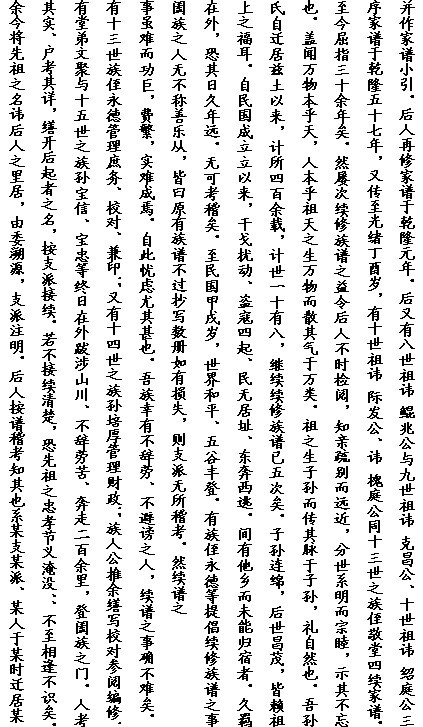 并作家谱小引。后人再修家谱于乾隆元年。后又有八世祖讳 鲲兆公与九世祖讳 克昌公、十世祖讳 绍庭公三
序家谱于乾隆五十七年，又传至光绪丁酉岁，有十世祖讳 际发公、讳 槐庭公同十三世之族侄敬堂四续家谱。
至今屈指三十余年矣。然屡次续修族谱之益令后人不时检阅，知亲疏别而远近，分世系明而宗睦，示其不忘
也。盖闻万物本乎天，人本乎祖天之生万物而散其气于万类。祖之生子孙而传其脉于子孙，礼自然也。吾孙
氏自迁居兹土以来，计所四百余载，计世一十有八，继续续修族谱已五次矣。子孙连绵，后世昌茂，皆赖祖
上之福耳。自民国成立立以来，干戈扰动、盗寇四起、民无居址、东奔西逃。间有他乡而未能归宿者。久羁
在外，恐其日久年远。无可考稽矣。至民国甲戌岁，世界和平、五谷丰登。有族侄永德等提倡续修族谱之事
阖族之人无不称善乐从，皆曰原有族谱不过抄写数册如有损失，则支派无所稽考。然续谱之
事虽难而功巨，费繁，实难成焉。自此忧虑尤其甚也。吾族幸有不辞劳、不避谤之人，续谱之事确不难矣。
有十三世族侄永德管理庶务、校对、兼印；又有十四世之族孙培厚管理财政；族人公推余缮写校对参阅编修.
有堂弟文聚与十五世之族孙宝信、宝忠等终日在外跋涉山川、不辞劳苦、奔走二百余里，登阖族之门。人考
其实、户考其详，缮开后起者之名，按支派接续。若不接续清楚，恐先祖之忠孝节义淹没、、不至相逢不识矣。
余今将先祖之名讳后人之里居，由委溯源，支派注明。后人按谱稽考知其也系某支某派、某人于某时迁居某